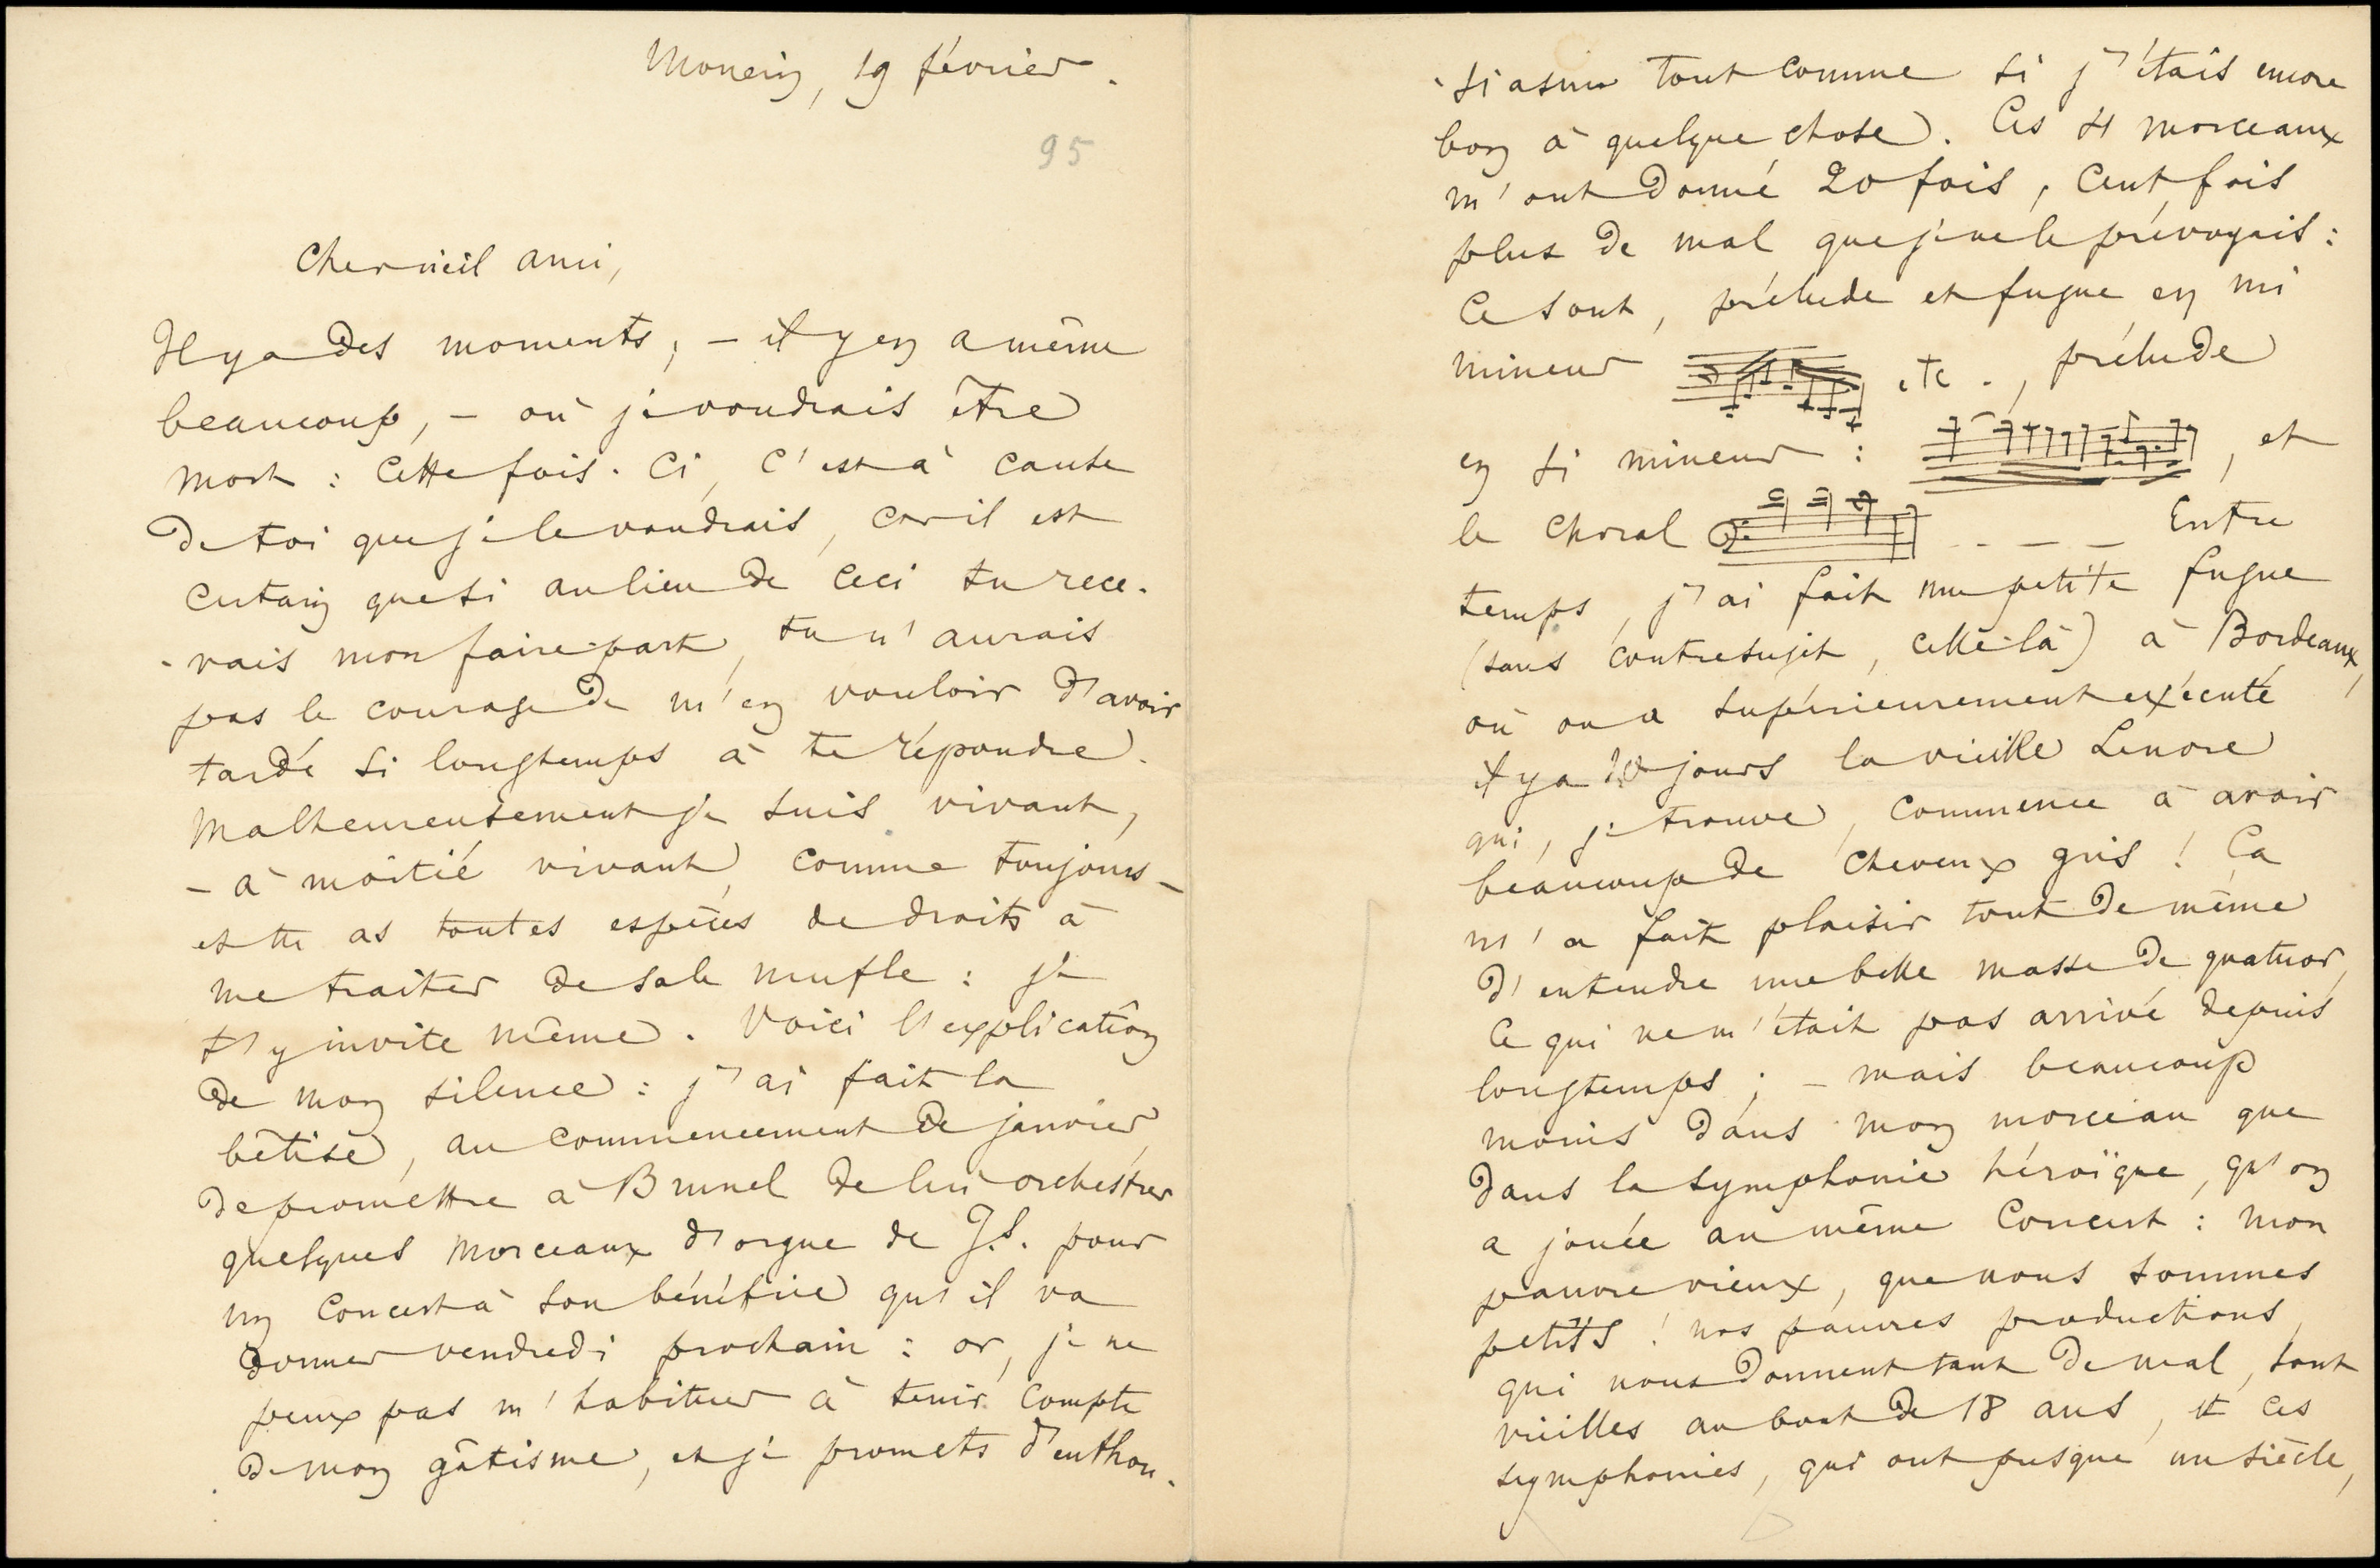 Monein, 19 février.
95
Cher vieil ami,
Il y a des moments, – il y en a même
beaucoup, – où je voudrais être
mort : cette fois-ci, c'est à cause
de toi que je le voudrais, car il est
certain que si au lieu de ceci tu rece-
-vais mon faire-part, tu n'aurais
pas le courage de m'en vouloir d'avoir
tardé si longtemps à te répondre.
Malheureusement je suis vivant,
– à moitié vivant, comme toujours –
et tu as toutes espèces de droits à
me traiter de sale mufle : je
t'y invite même. Voici l'explication
de mon silence : j'ai fait la
bêtise, au commencement de janvier,
de promettre à Brunel de lui orchestrer
quelques morceaux d'orgue de J.S. pour
un concert à son bénéfice qu'il va
donner vendredi prochain : or, je ne
peux pas m'habituer à tenir compte
de mon gâtisme, et je promets d'enthou-
-siasme tout comme si j'étais encore
bon à quelque chose. Ces 4 morceaux
m'ont donné 20 fois, cent fois
plus de mal que je ne le prévoyais :
ce sont, prélude et fugue en mi
mineur etc., prélude
en si mineur : , et
le choral - - - Entre
temps, j'ai fait une petite fugue
(sans contresujet, celle-là) à Bordeaux,
où on a supérieurement exécuté
il y a jours la vieille Lenore
qui, je trouve, commence à avoir
beaucoup de cheveux gris ! Ça
m'a fait plaisir tout de même
d'entendre une belle masse de quatuor,
ce qui ne m'était pas arrivé depuis
longtemps ; – mais beaucoup
moins dans mon morceau que
dans la symphonie héroïque, qu'on
a jouée au même concert : mon
pauvre vieux, que nous sommes
petits ! nos pauvres productions,
qui nous donnent tant de mal, sont
vieilles au bout de 18 ans, et ces
symphonies, qui ont presque un siècle,